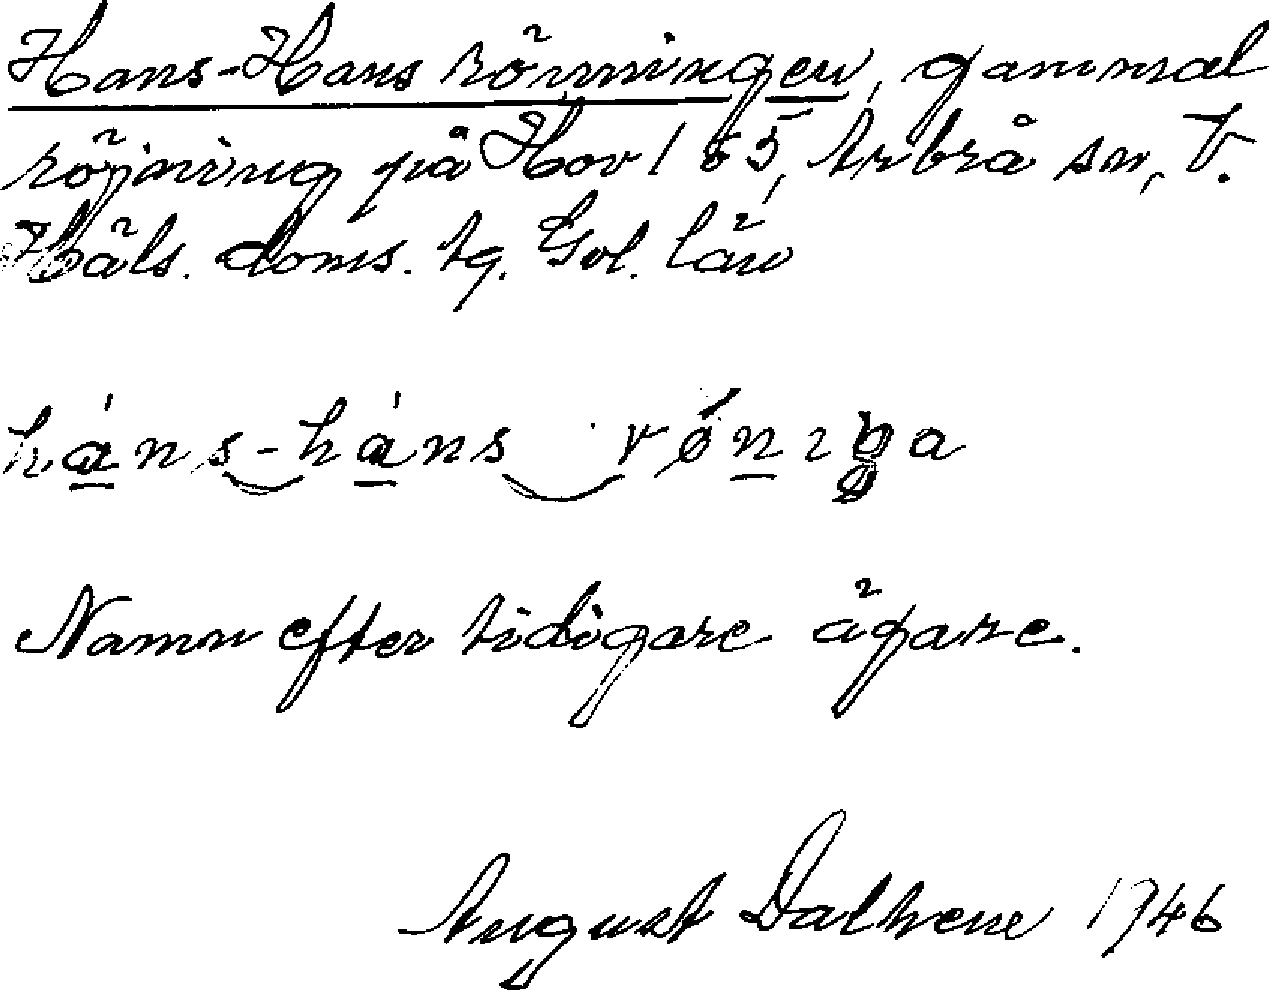 Hans-Hans rönningen, gammal
röjning på Hov 1 o 5, Arbrå sn, V.
Häls. doms. tg. Gvl. län
háns-háns rǿnıŋa
Namn efter tidigare ägare.
August Dalhene 1946